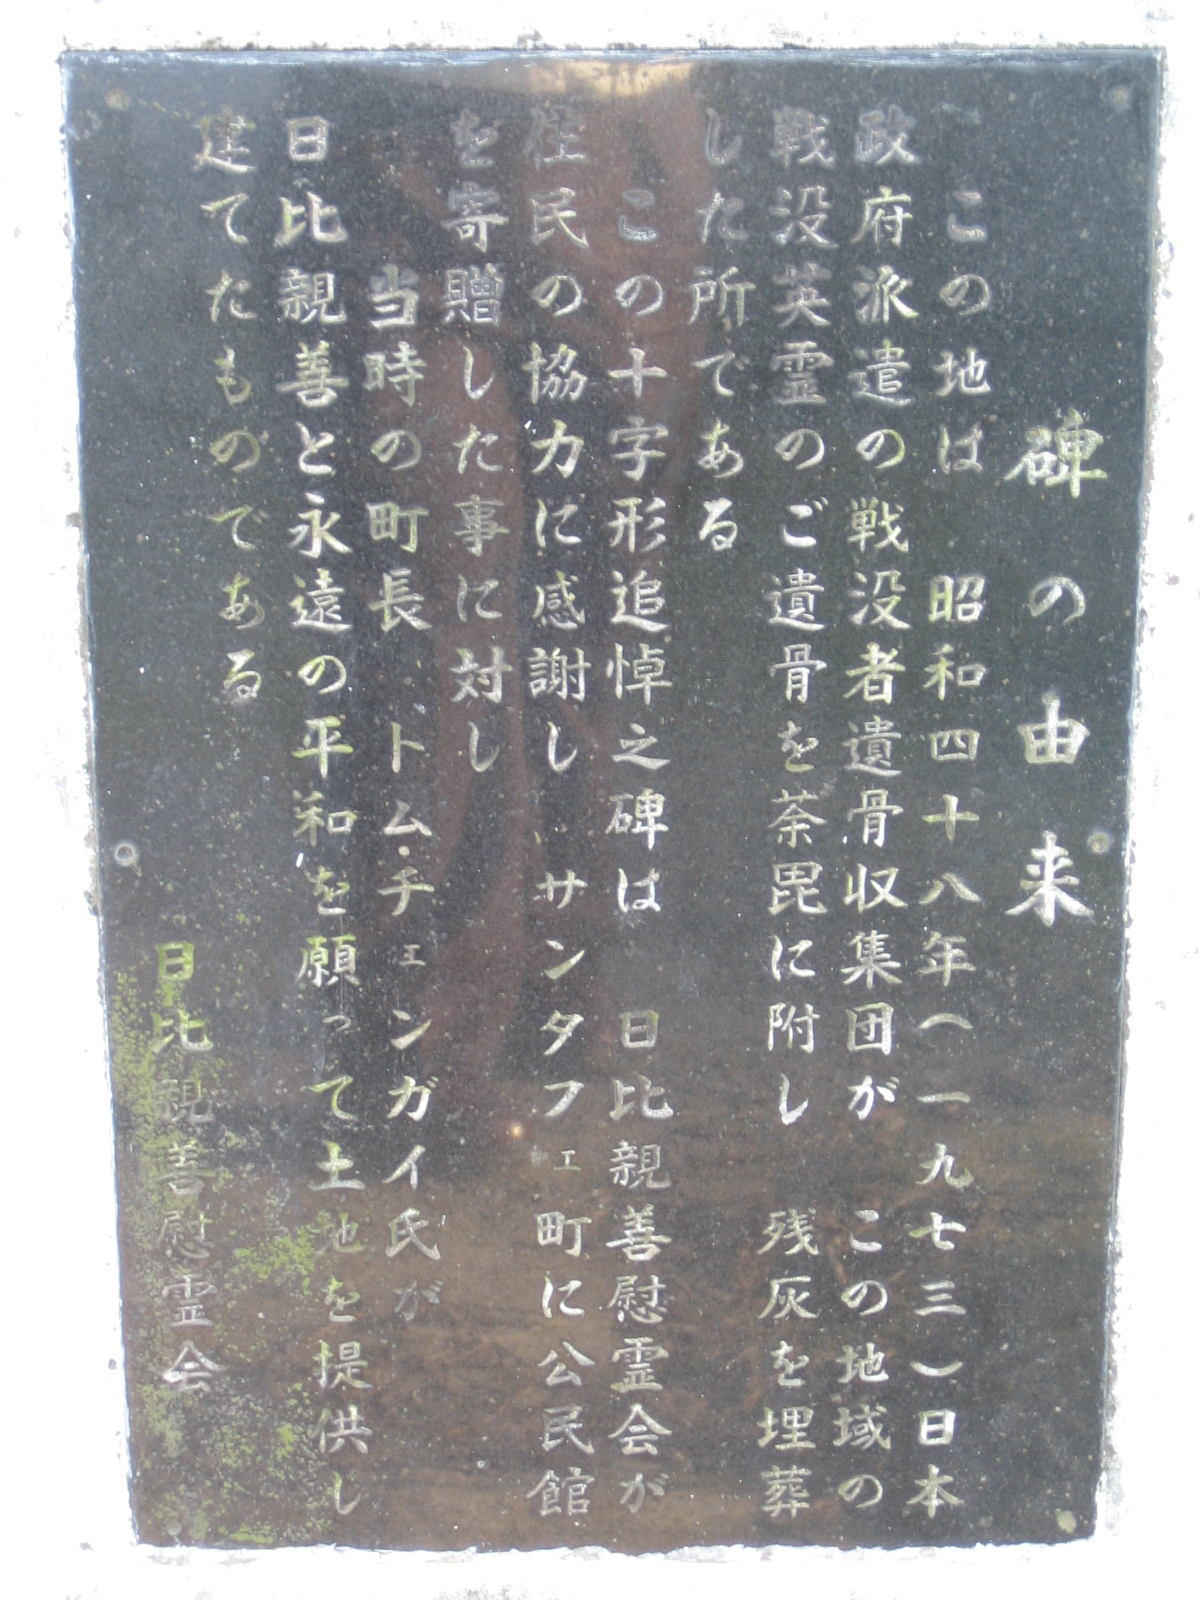 碑の由来
この地は 昭和四十八年(一九七三)日本
政府派遣の戦没者遺骨収集団が この地域の
戦没英霊のご遺骨を荼毘に附し 残灰を埋葬
した所である
この十字形追悼之碑は 日比親善慰霊会が
住民の協力に感謝し サンタフェ町に公民館
を寄贈した事に対し
当時の町長 トム・チェンガイ氏が
日比親善と永遠の平和を願って土地を提供し
建てたものである
日比親善慰霊会